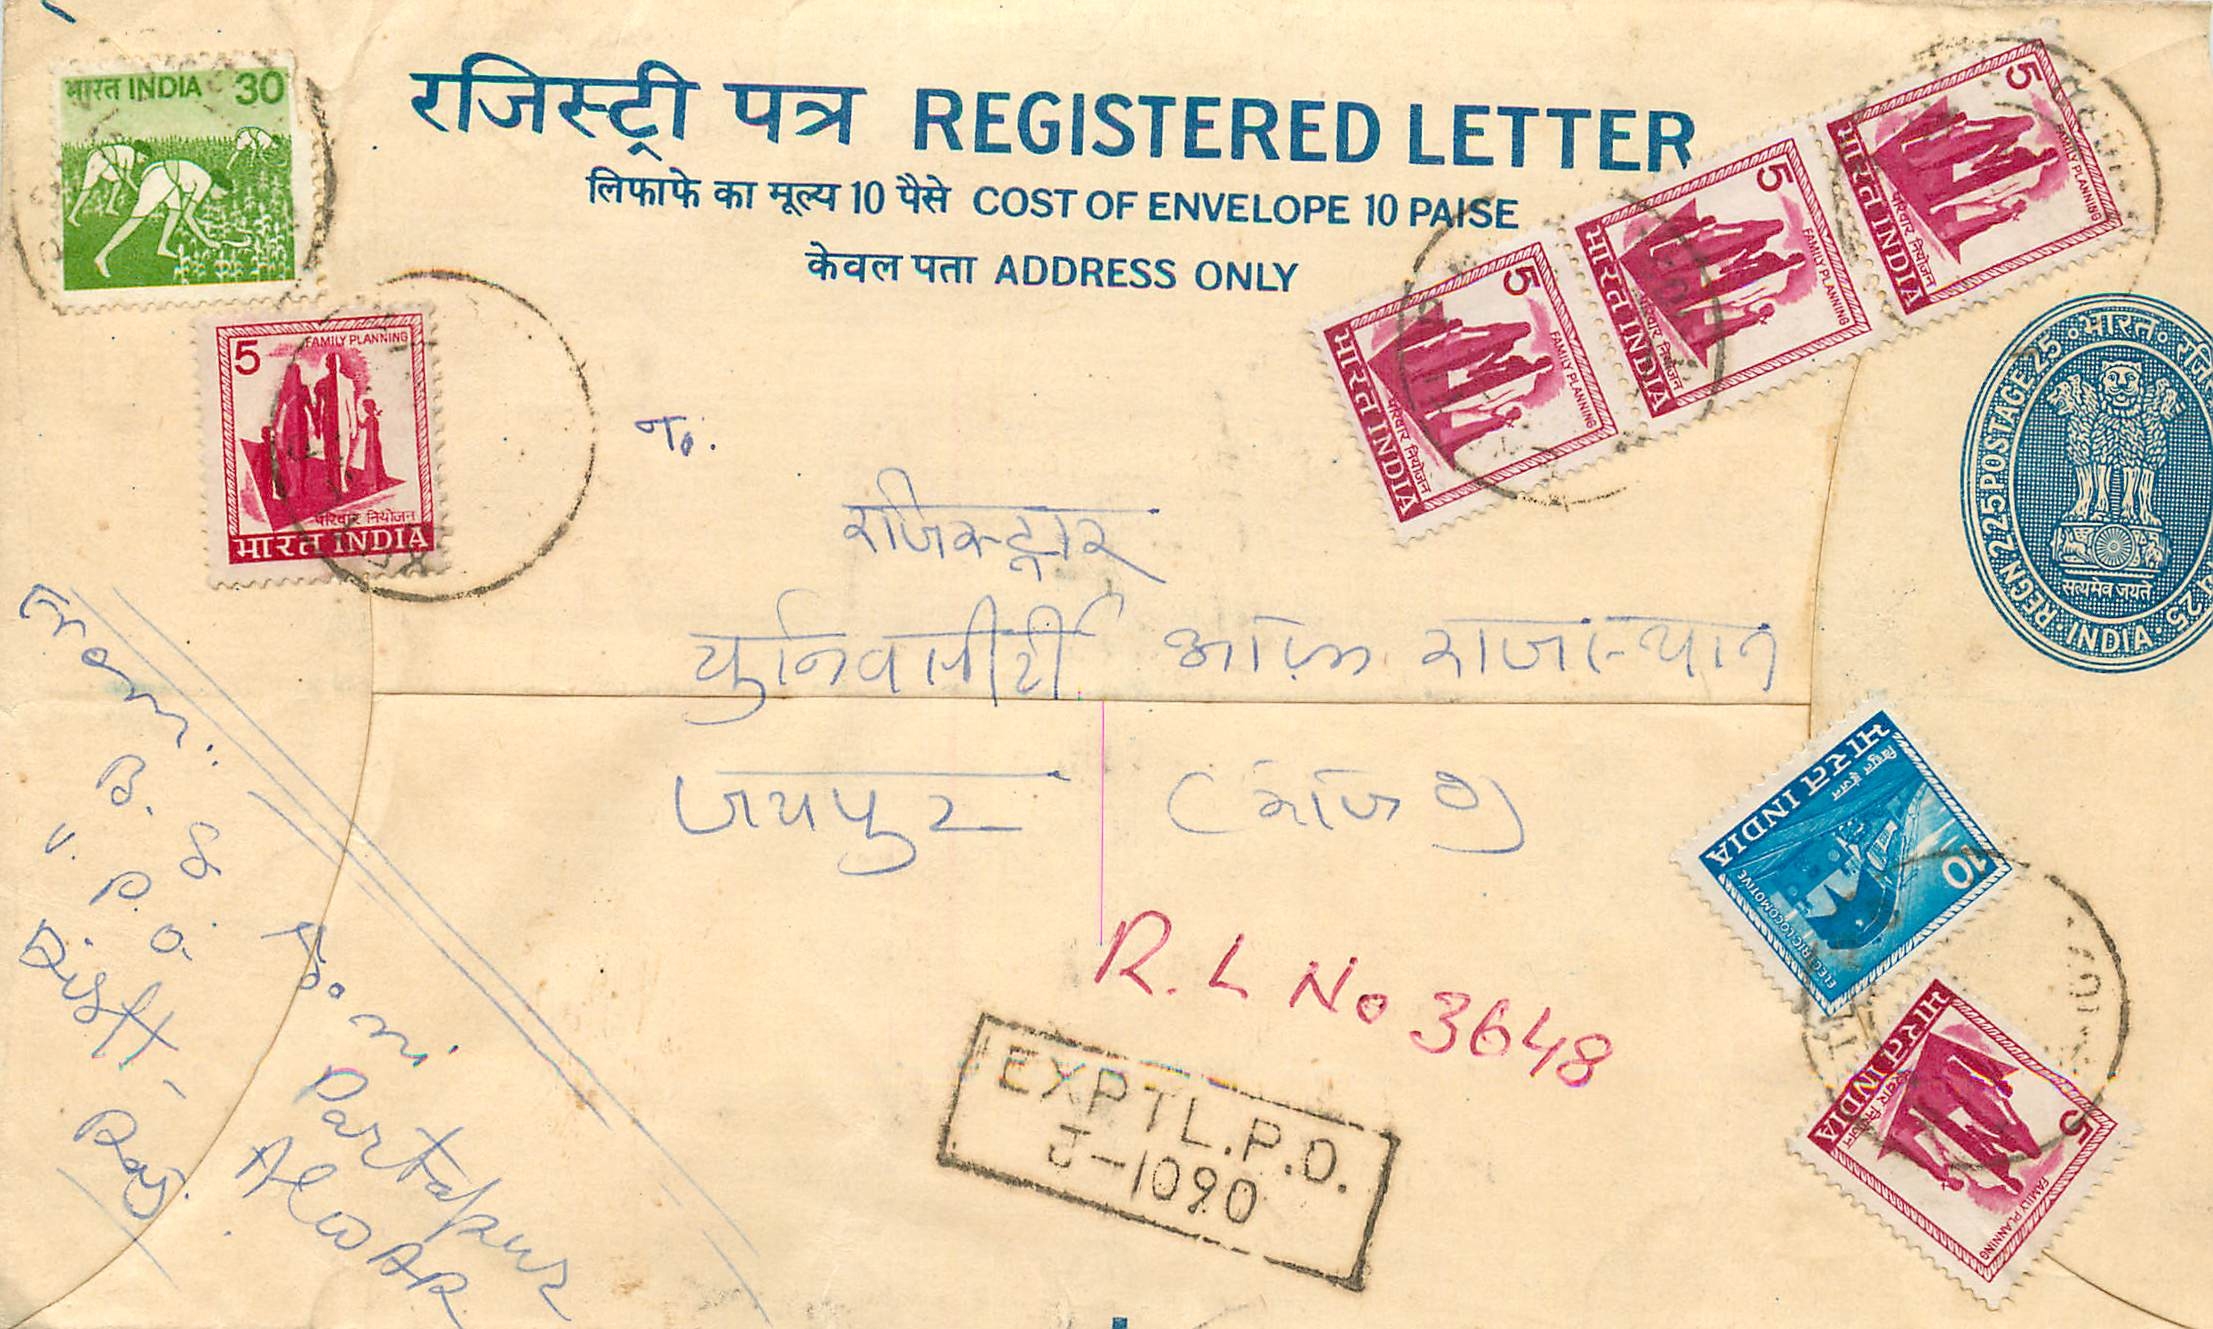 रजिस्ट्री पत्र REGISTERED LETTER
लिफाफे का मूल्य 10 पैसे COST OF ENVELOPE 10 PAISE
केवल पता ADDRESS ONLY
भारत INDIA 30
5 FAMILY PLANNING
परिवार नियोजन
भारत INDIA
5 FAMILY PLANNING
परिवार नियोजन
भारत INDIA
5 FAMILY PLANNING
परिवार नियोजन
भारत INDIA
5 FAMILY PLANNING
परिवार नियोजन
भारत INDIA
REGN 225 POSTAGE 25 भारत
सत्यमेव जयते
INDIA 25
To.
रजिस्ट्रार
युनिवर्सीटी ऑफ़ राजस्थान
जयपुर (राज०)
भारत INDIA
विद्युत इंजन
10
ELECTRIC LOCOMOTIVE
5 FAMILY PLANNING
परिवार नियोजन
भारत INDIA
R. L No 3648
EXPTL.P.O.
J-1090
From:
B. S. Soni
V. P. O. Partapur
Distt- ALWAR
Raj.